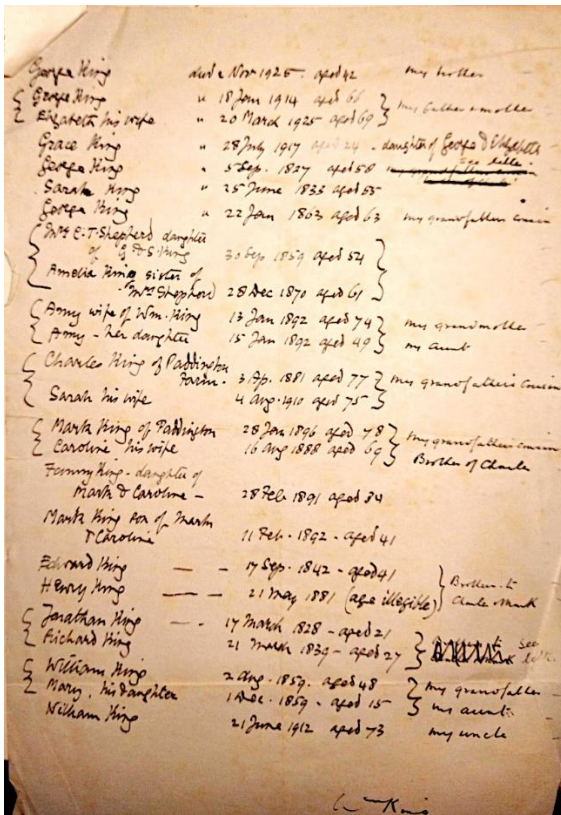 George King died 2 Nov 1925. aged 42 my brother
George King " 18 Jan 1914 aged 66 my father & mother
Elizabeth his wife " 20 March 1925 aged 69
Grace King " 28 July 1917 aged 24 - daughter of George & Elizabeth
George King " 5 Sep. 1827 aged 58 see letter
Sarah King " 25 June 1833 aged 55
George King " 22 Jan 1863 aged 63 my grandfathers cousin
Mrs C. T. Shepherd daughter
of G & S. King 30 Sep 1859 aged 54
Amelia King sister of
Mrs Shepherd 28 Dec 1870 aged 61
Amy wife of Wm. King 13 Jan 1892 aged 74 my grandmother
Amy - her daughter 15 Jan 1892 aged 49 my aunt
Charles King of Paddington
Farm. 3 Ap. 1881 aged 77 my grandfather's cousin
Sarah his wife 4 Aug. 1910 aged 75
Mark King of Paddington 28 Jan 1896 aged 78 my grandfathers cousin
Caroline his wife 16 Aug 1888 aged 69 Brother of Charles
Fanny King - daughter of
Mark & Caroline - 28 Feb 1891 aged 34
Mark King son of Mark
& Caroline 11 Feb. 1892 - aged 41
Edward King — - 17 Sep. 1842 - aged 41 Brothers to
Henry King — - 21 May 1881 (age illegible) Charles & Mark
Jonathan King - - 17 March 1828 - aged 21
Richard King 21 March 1839 - aged 27 see letter
William King 2 Aug. 1859. aged 48 my grandfather
Mary, his daughter 1 Dec. 1859 - aged 15 my aunt
William King 21 June 1912 aged 73 my uncle
Wm King